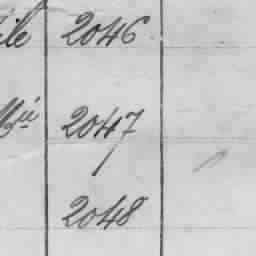 ile 2046
2047
2048